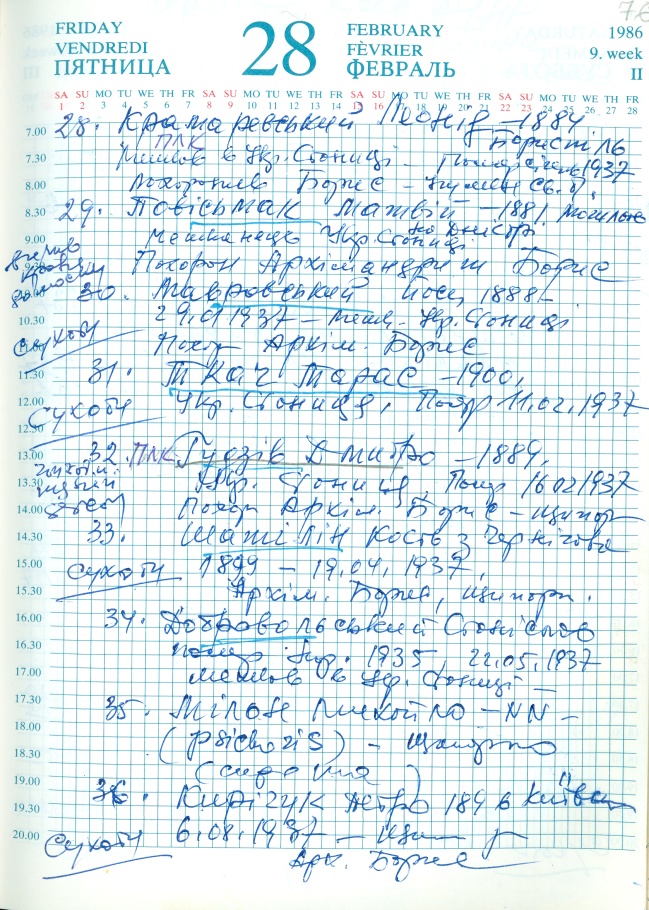 76
FRIDAY
VENDREDI
ПЯТНИЦА
28
FEBRUARY
FÈVRIER
ФЕВРАЛЬ
1986
9. week
II
SA SU MO TU WE TH FR SA SU MO TU WE TH FR SA SU MO TU WE TH FR SA SU MO TU WE TH FR
1 2 3 4 5 6 7 8 9 10 11 12 13 14 15 16 17 18 19 20 21 22 23 24 25 26 27 28
7.00 28. Крамаревський Леонід – 1884
ПЛК Бориспіль
7.30 Мешков в Укр. Станиці – Помер 1937
8.00 Борис –
8.30 29. Повісьмак Матвій – 1881
9.00 мешканець Укр. Станиці
9.30 Похорон Архімандрит Борис
10.00 30. Мавровський Йосип 1888 –
10.30 29.01 1937 – меш. Укр. Станиці
Сухоти
11.00 Похор Архім. Борис
11.30 31. Ткач Тарас – 1900,
Сухоти
12.00 Укр. Станиця, Помер 11.02.1937
12.30
13.00 32. ПЛК Гудзів Дмитро – 1889,
13.30 Укр. Станиц, Помер 16 02 1937
14.00 Похор Архім. Борис – Щипор
14.30 33. Шатілін Кость з Чернігова
15.00 Сухоти 1899 – 19.04.1937,
15.30 Архім. Борис, Щипорн.
16.00 34. Добровольський Станіслав
16.30 1935, 22.05.1937
17.00 мешков в Укр. Станиці –
17.30 35. – NN –
18.00 ( ) – Щипорно
18.30
19.00 36. Кирічук Петро 1896 Київ
19.30 6.08.1937 –
20.00 Сухоти
Арх. Борис